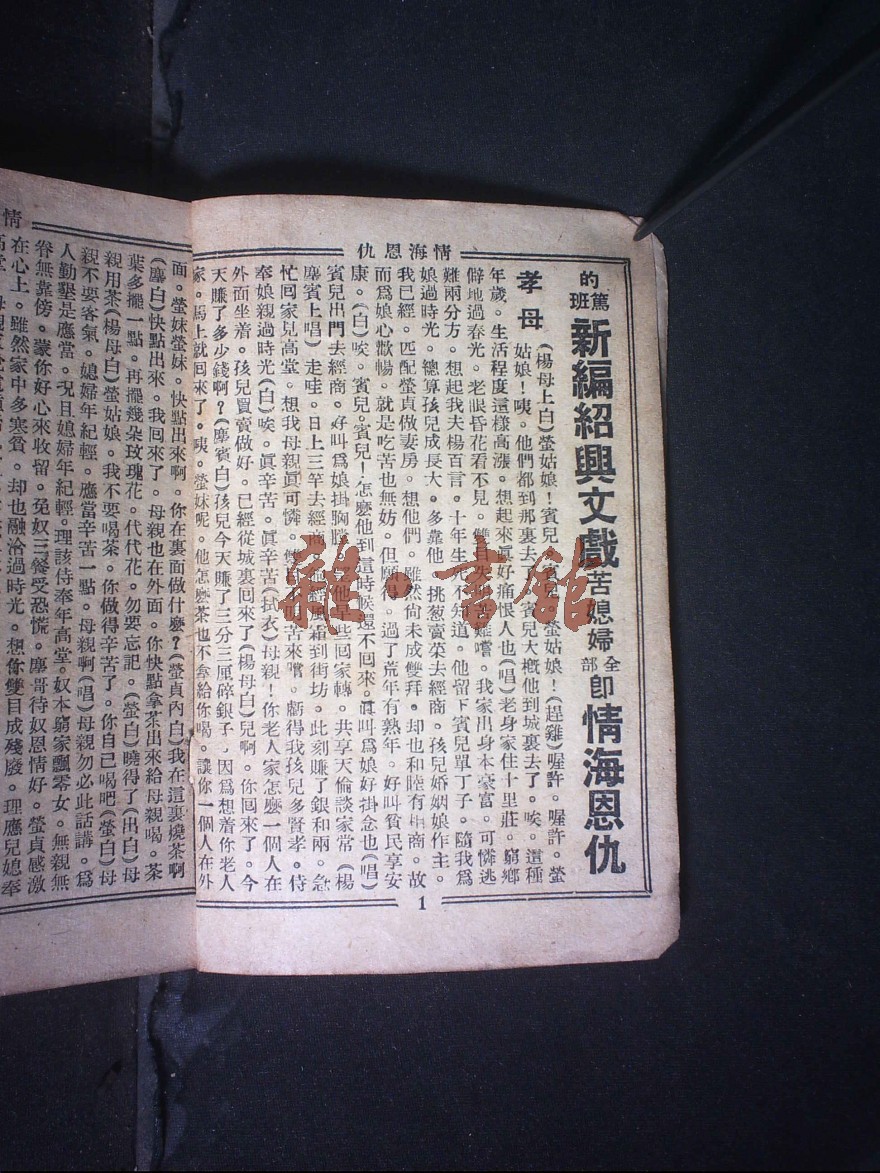 情海恩仇
的篤班 新編紹興文戲 苦媳婦 全部 卽 情海恩仇
孝母
(楊母上白)螢姑娘!賓兒!賓兒!螢姑娘!(趕雞)喔許。喔許。螢
姑娘!咦。他們都到那裏去了。賓兒大槪他到城裏去了。唉。這種
年歲。生活程度這樣高漲。想起來眞好痛恨人也(唱)老身家住十里莊。窮鄉
僻地過春光。老眼昏花看不見。雙目失明苦難嚐。我家出身本豪富。可憐逃
難兩分方。想起我夫楊百言。十年生死不知道。他留下賓兒單丁子。隨我爲
娘過時光。總算孩兒成長大。多靠他。挑葱賣菜去經商。孩兒婚姻娘作主。
我已經。匹配螢貞做妻房。想他們。雖然尙未成雙拜。却也和睦有相商。故
而爲娘心歡暢。就是吃苦也無妨。但願得。過了荒年有熟年。好叫貧民享安
康。(白)唉。賓兒。賓兒!怎麽他到這時候還不回來。眞叫爲娘好掛念也(唱)
賓兒出門去經商。好叫爲娘掛胸膛。他早些回家轉。共享天倫談家常(楊
塵賓上唱)走哇。日上三竿去經商。風霜到街坊。此刻賺了銀和兩。急
忙回家見高堂。想我母親眞可憐。苦來嚐。虧得我孩兒多賢孝。侍
奉娘親過時光(白)唉。眞辛苦。眞辛苦(拭衣)母親!你老人家怎麽一個人在
外面坐着。孩兒買賣做好。已經從城裏回來了(楊母白)兒啊。你回來了。今
天賺了多少錢啊?(塵賓白)孩兒今天賺了三分三厘碎銀子。因爲想着你老人
家。馬上就回來了。咦。螢妹呢。他怎麽茶也不拿給你喝。讓你一個人在外
1
情
面。螢妹螢妹。快點出來啊。你在裏面做什麽?(螢貞內白)我在這裏燒茶啊
(塵白)快點出來。我回來了。母親也在外面。你快點拿茶出來給母親喝。茶
葉多攞一點。再攞幾朵玫瑰花。代代花。勿要忘記。(螢白)曉得了(出白)母
親用茶(楊母白)螢姑娘。我不要喝茶。你做得辛苦了。你自己喝吧(螢白)母
親不要客氣。媳婦年紀輕。應當辛苦一點。母親啊(唱)母親勿必此話講。爲
人勤墾是應當。况且媳婦年紀輕。理該侍奉年高堂。奴本窮家飄零女。無親無
眷無靠傍。蒙你好心來收留。免奴三餐受恐慌。塵哥待奴恩情好。螢貞感激
在心上。雖然家中多寒貧。却也融洽過時光。想你雙目成殘廢。理應兒媳奉
雜·書館